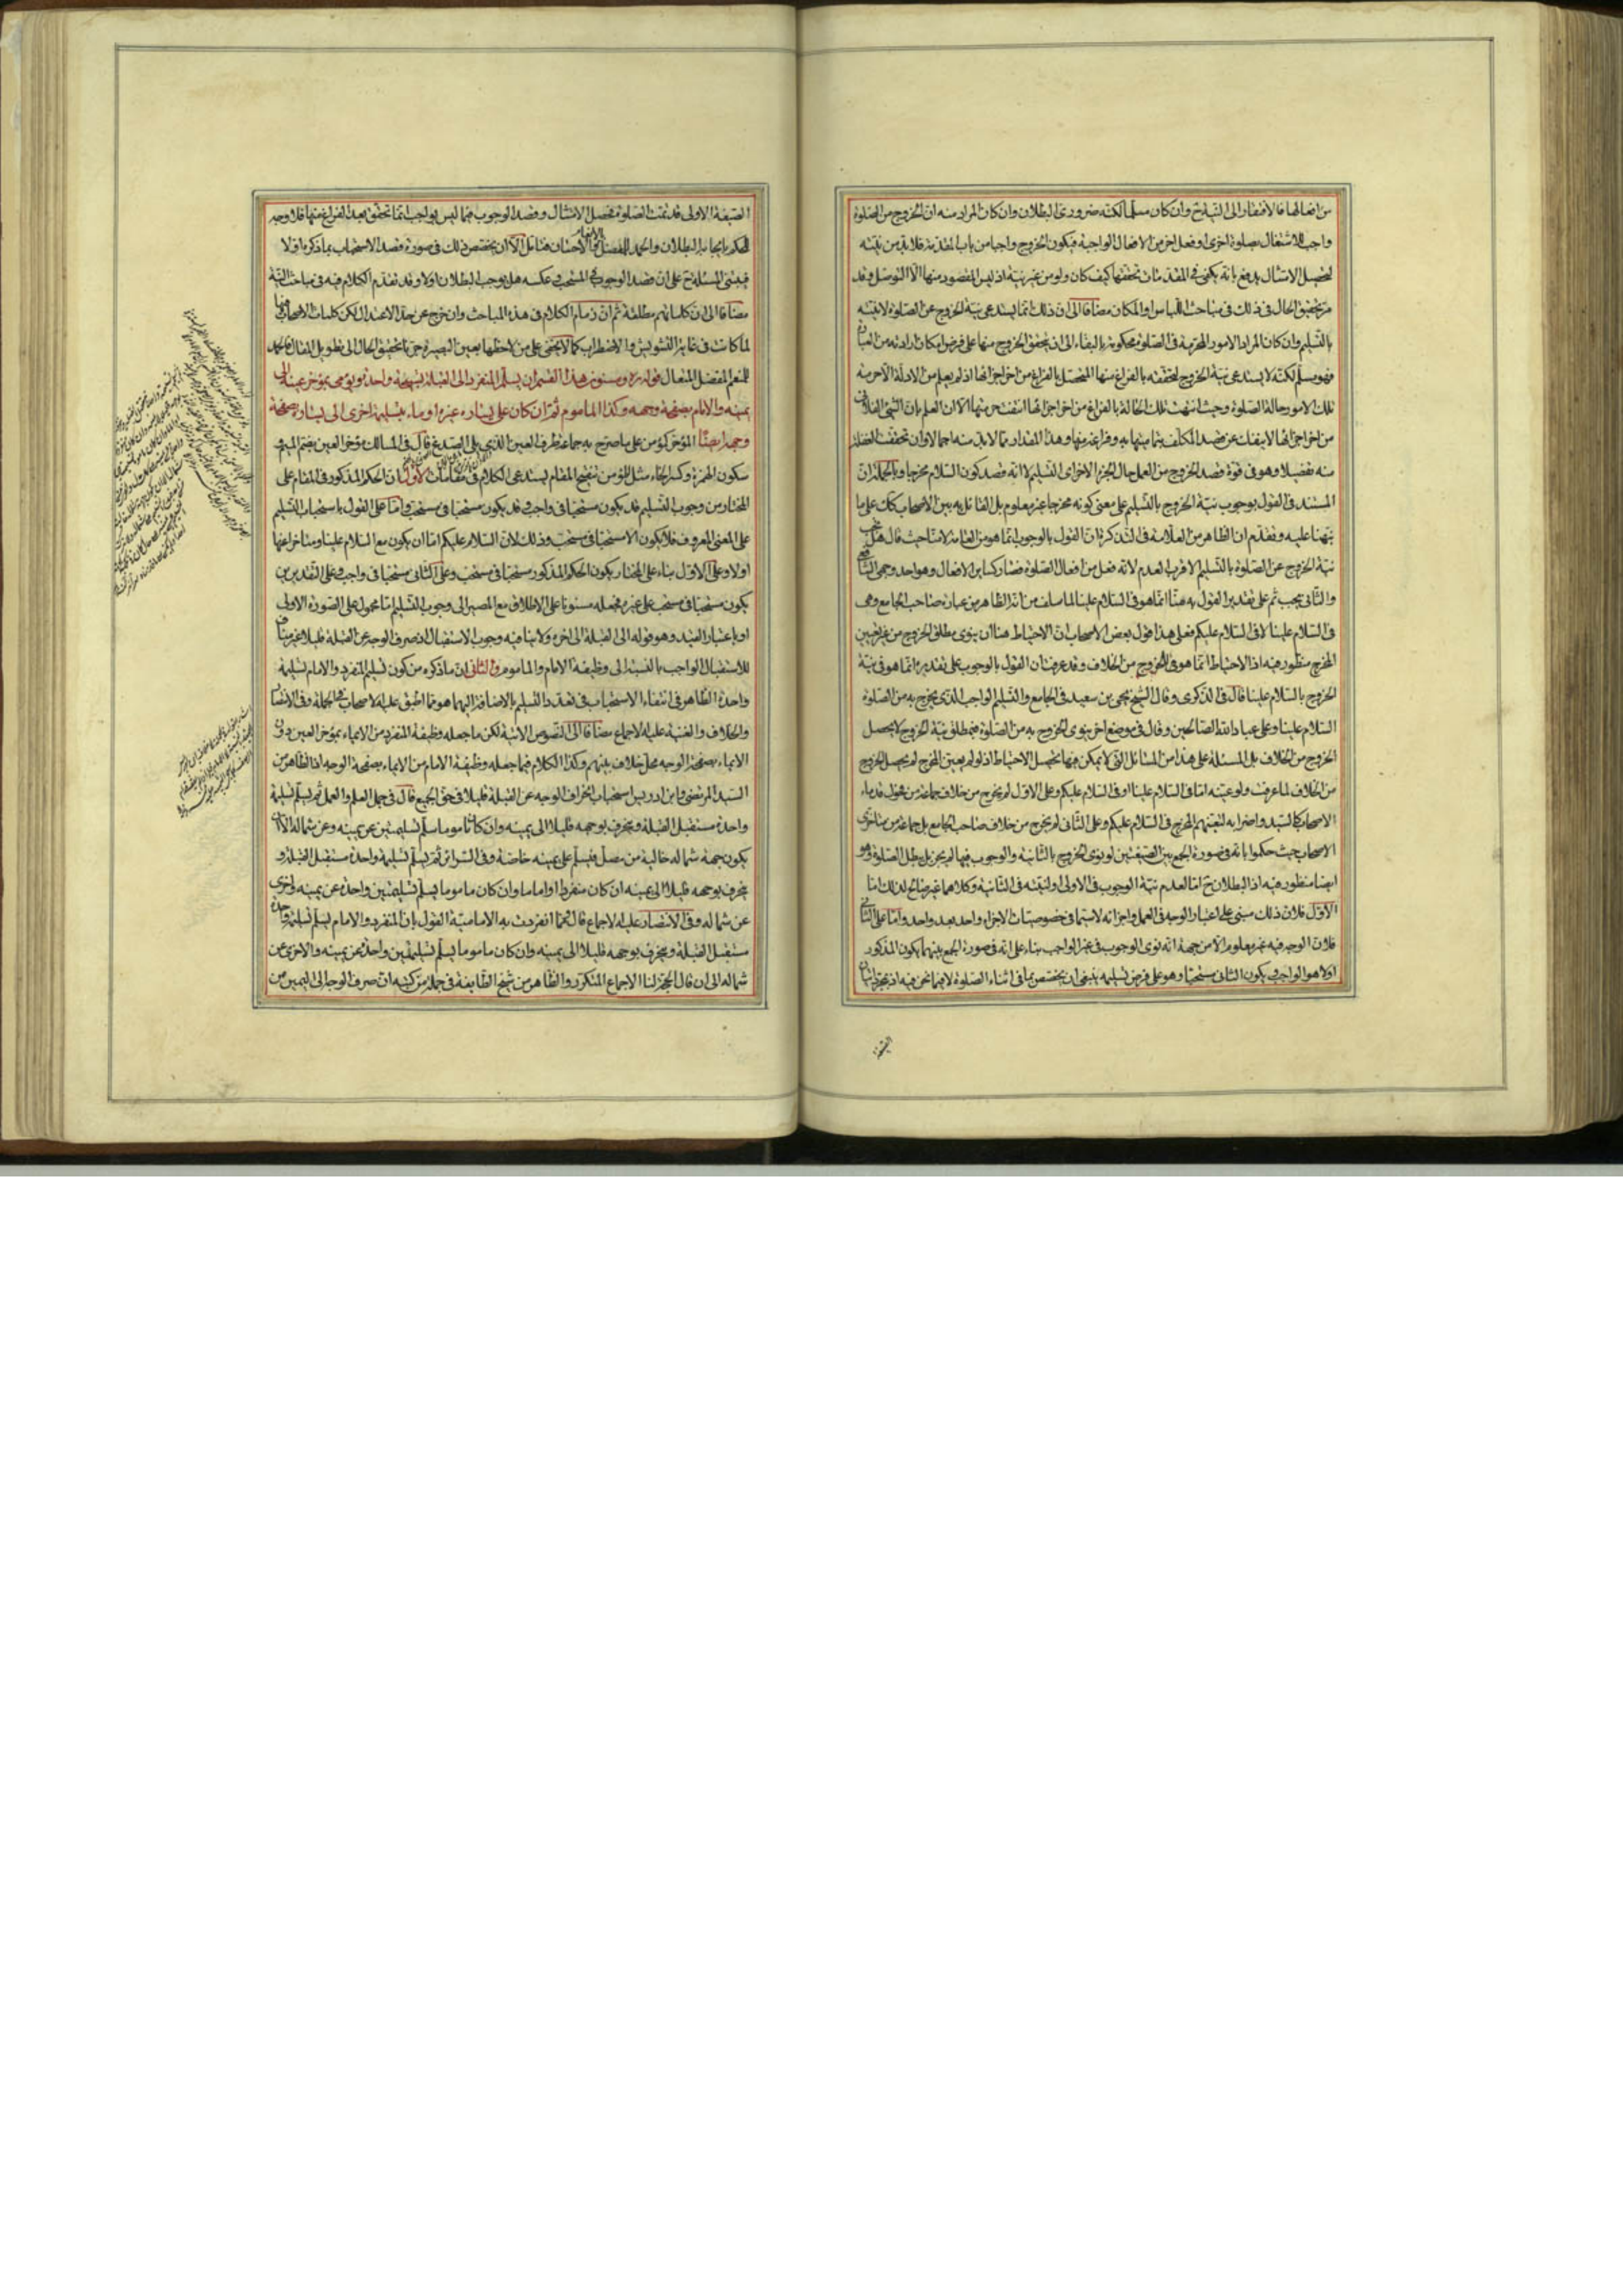 من افعالها فالافتقار الى النية ح وان كان مسلما لكنه ضرورى البطلان وان كان المراد منه ان الخروج من الصلوة
واجب للاشتغال بصلوة اخرى او فعل اخر من الافعال الواجبة فيكون الخروج واجبا من باب المقدمة فلابد من نيته
لتحصيل الامتثال يدفع بانه يكفى فى المقدمات تحققها كيف كان ولو من غير نية اذ ليس المقصود منها الا التوصل وقد
مر تحقيق الحال فى ذلك فى مباحث اللباس او المكان مضافا الى ان ذلك انما يستدعى نية الخروج عن الصلوة لا نيته
بالتسليم وان كان المراد الامور المحرمة فى الصلوة محكومة بالبقاء الى ان يتحقق الخروج منها على فرض امكان ارادته من العبارة
فهو مسلم لكنه لا يستدعى نية الخروج لتحققه بالفراغ منها المتحصل بالفراغ من اخر اجزائها اذ لم يعلم من الادلة الا حرمة
تلك الامور حالة الصلوة وحيث انتهت تلك الحالة بالفراغ من اخر اجزائها انتفت حرمتها الا ان العلم بان الشئ الفلانى
من اخر اجزائها لا ينفك عن قصد المكلف اتيانها به وفراغه منها وهذا المقدار مما لابد منه اجمالا وان تحققت الغفلة
منه تفصيلا وهو فى قوة قصد الخروج من العمل حال الجزء الاخر اى التسليم لا انه قصد كون السلام مخرجا وبالجملة ان
المستند فى القول بوجوب نية الخروج بالتسليم على معنى كونه مخرجا غير معلوم بل القائل به بين الاصحاب كك على ما
نبهنا عليه وتقدم ان الظاهر من العلامة فى التذكرة ان القول بالوجوب انما هو من العامة لا منا حيث قال هل يجب
نية الخروج عن الصلوة بالتسليم الاقرب العدم لانه فعل من افعال الصلوة فصار كساير الافعال وهو احد وجهى الشافعى
والثانى يجب ثم على تقدير القول به منا انما هو فى السلام علينا لما سلف من ان الظاهر من عبارة صاحب الجامع وهى
فى السلام علينا لا فى السلام عليكم فعلى هذا قول بعض الاصحاب ان الاحتياط هنا ان ينوى مطلق الخروج من غير تعيين
المخرج منظور فيه اذ الاحتياط انما هو فى الخروج من الخلاف وقد عرفت ان القول بالوجوب على تقديره انما هو فى نية
الخروج بالسلام علينا قال فى الذكرى وقال الشيخ يحيى بن سعيد فى الجامع والتسليم الواجب الذى يخرج به من الصلوة
السلام علينا وعلى عباد الله الصالحين وقال فى موضع اخر ينوى الخروج به من الصلوة فبمطلق نية الخروج لا يحصل
الخروج من الخلاف بل المسئلة على هذا من المسائل التى لا يمكن فيها تحصيل الاحتياط اذ لو لم يعين المخرج لم يحصل الخروج
من الخلاف لما عرفت ولو عينه اما فى السلام علينا او فى السلام عليكم وعلى الاول لم يخرج من خلاف جماعة من فحول قدماء
الاصحاب كالسيد واضرابه لتعينهم المخرج فى السلام عليكم وعلى الثانى لم يخرج من خلاف صاحب الجامع بل جماعة من متاخرى
الاصحاب حيث حكموا بانه فى صورة الجمع بين الصيغتين لو نوى الخروج بالثانية والوجوب فيها لم يجز بل بطل الصلوة وهو
ايضا منظور فيه اذ البطلان ح اما لعدم نية الوجوب فى الاولى او لنيته فى الثانية وكلاهما غير صالح لذلك اما
الاول فلان ذلك مبنى على اعتبار الوجه فى العمل واجزائه لاسيما فى خصوصيات الاجزاء واحد بعد واحد واما على الثانى
فلان الوجه فيه غير معلوم الا من جهة انه نوى الوجوب فى غير الواجب بناء على انه فى صورة الجمع بينهما يكون المذكور
اولا هو الواجب ويكون الثانى مستحبا وهو على فرض تسليمه ينبغى ان يختص بما فى اثناء الصلوة لا فيما نحن فيه اذ بمجرد اتيان
الصيغة
الصيغة الاولى قد تمت الصلوة فحصل الامتثال وقصد الوجوب فيما ليس بواجب انما تحقق بعد الفراغ منها فلا وجه
للحكم بايجابه البطلان والحمد للمفضل بالانعام والاحسان فتامل الا ان يختص ذلك فى صورة قصد الاستحباب بما ذكره اولا
فيبنى المسئلة ح على ان قصد الوجوب فى المستحب وعكسه هل يوجب البطلان اولا وقد تقدم الكلام فيه فى مباحث النية
مضافا الى ان كلماتهم مطلقة ثم ان زمام الكلام فى هذه المباحث وان خرج عن حد الاعتدال لكن كلمات الاصحاب فيها
لما كانت فى غاية التشويش والاضطراب كما لا يخفى على من لاحظها بعين البصيرة جرنا تحقيق الحال الى تطويل المقال فالحمد
للمنعم المفضل المتعال قوله ره ومسنون هذا القسم ان يسلم المنفرد الى القبلة تسليمة واحدة ويؤمى بمؤخر عينيه الى
يمينه والامام بصفحة وجهه وكذا الماموم ثم ان كان على يساره غيره اوماء بتسليمة اخرى الى يساره بصفحة
وجهه ايضا المؤخر كمؤمن على ما صرح به جماعة طرف العين الذى يلى الصدغ قال فى المسالك مؤخر العين بضم الميم و
سكون الهمزة وكسر الخاء مثل المؤمن تنقيح المقام يستدعى الكلام فى مقامات الاول ان الحكم المذكور فى المقام على
المختار من وجوب التسليم قد يكون مستحبا فى واجب وقد يكون مستحبا فى مستحب واما على القول باستحباب التسليم
على المعنى المعروف فلا يكون الا مستحبا فى مستحب وذلك لان السلام عليكم اما ان يكون مع السلام علينا ومتاخرا عنها
اولا وعلى الاول بناء على المختار يكون الحكم المذكور مستحبا فى مستحب وعلى الثانى مستحبا فى واجب وعلى التقديرين
يكون مستحبا فى مستحب على غيره فجعله مسنونا على الاطلاق مع المصير الى وجوب التسليم اما محمول على الصورة الاولى
او باعتبار القيد وهو قوله الى القبلة الى اخره ولا ينافيه وجوب الاستقبال اذ صرف الوجه عن القبلة قليلا غير مناف
للاستقبال الواجب بالنسبة الى وظيفة الامام والماموم والثانى ان ما ذكره من كون تسليم المنفرد والامام تسليمة
واحدة الظاهر فى انتفاء الاستحباب فى تعدد التسليم بالاضافة اليهما هو مما اطبق عليه الاصحاب فى الجملة وفى الانتصار
والخلاف والغنية عليه الاجماع مضافا الى النصوص الاتية لكن ما جعله وظيفة المنفرد من الايماء بمؤخر العين دون
الايماء بصفحة الوجه محل خلاف بينهم وكذا الكلام فيما جعله وظيفة الامام من الايماء بصفحة الوجه اذ الظاهر من
السيد المرتضى وابن ادريس استحباب انحراف الوجه عن القبلة قليلا فى حق الجميع قال فى جمل العلم والعمل ثم يسلم تسليمة
واحدة مستقبل القبلة وينحرف بوجهه قليلا الى يمينه وان كان ماموما سلم تسليمتين عن يمينه وعن شماله الا ان
يكون جهة شماله خالية من مصل فيسلم على يمينه خاصة وفى السرائر ثم يسلم تسليمة واحدة مستقبل القبلة و
ينحرف بوجهه قليلا الى يمينه ان كان منفردا او اماما وان كان ماموما يسلم تسليمتين واحدة عن يمينه واخرى
عن شماله وفى الانتصار عليه الاجماع قال مما انفردت به الامامية القول بان المنفرد والامام يسلم تسليمة واحدة
مستقبل القبلة وينحرف بوجهه قليلا الى يمينه وان كان ماموما يسلم تسليمتين واحدة عن يمينه والاخرى عن
شماله الى ان قال الحجة لنا الاجماع المتكرر والظاهر من شيخ الطايفة فى جملة من كتبه ان صرف الوجه الى اليمين من